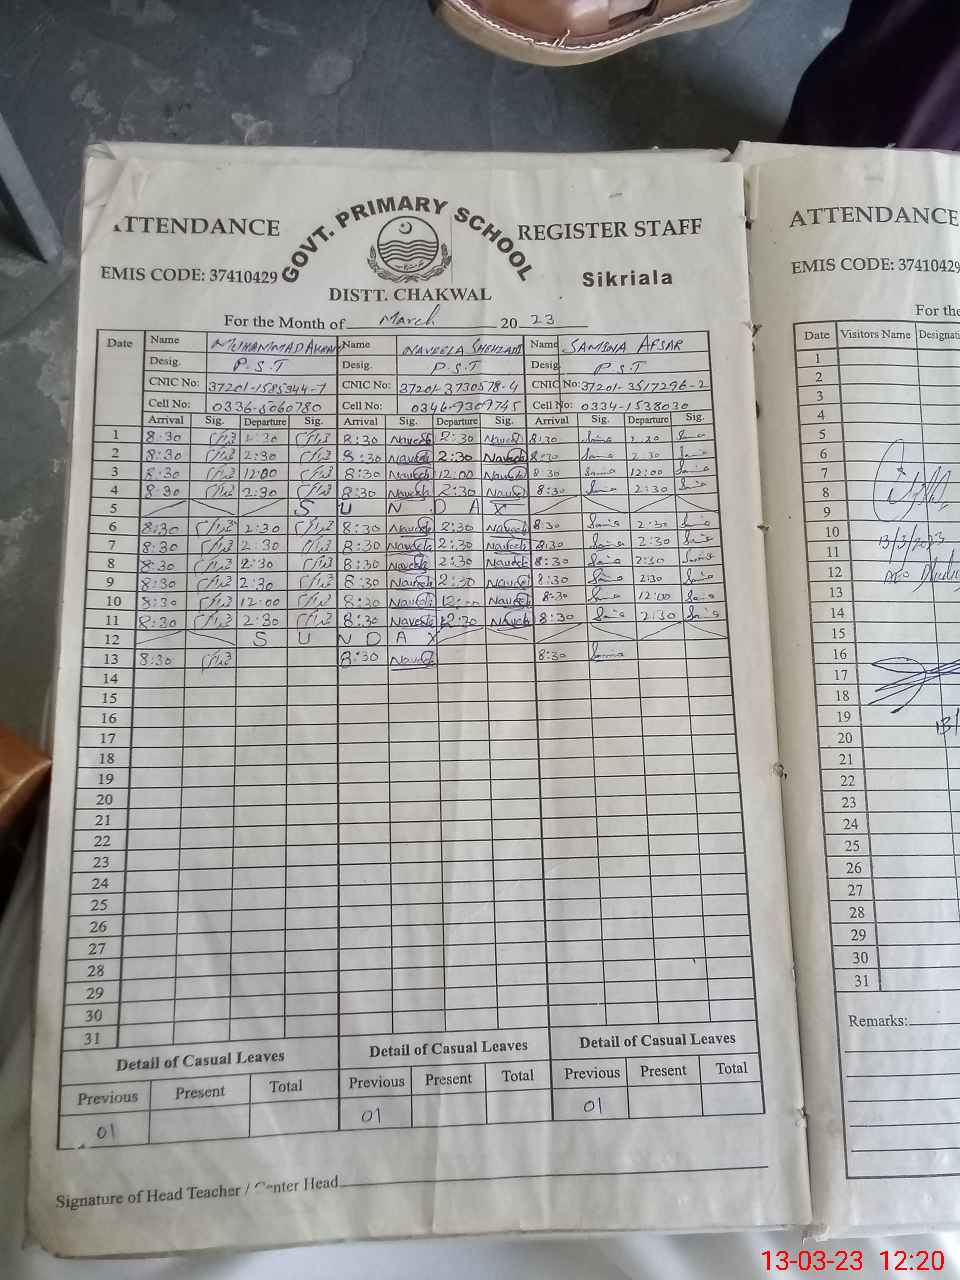 ATTENDANCE GOVT. PRIMARY SCHOOL REGISTER STAFF
EMIS CODE: 37410429 Sikriala
DISTT. CHAKWAL
For the Month of March 2023
Date Name MUHAMMAD Name NAVEELA SHEHZADI Name SAMINA AFSAR
Desig. P.S.T Desig. P.S.T Desig. P.S.T
CNIC No: 37201-1585944-7 CNIC No: 37201-3730578-4 CNIC No: 37201-3517296-2
Cell No: 0336-5060780 Cell No: 0346-9309745 Cell No: 0334-1538030
Arrival Sig. Departure Sig. Arrival Sig. Departure Sig. Arrival Sig. Departure Sig.
1 8:30 2:30 8:30 2:30 8:30 2:30
2 8:30 2:30 8:30 2:30 8:30 2:30
3 8:30 12:00 8:30 12:00 8:30 12:00
4 8:30 2:30 8:30 2:30 8:30 2:30
5 S U N D A Y
6 8:30 2:30 8:30 2:30 8:30 2:30
7 8:30 2:30 8:30 2:30 8:30 2:30
8 8:30 2:30 8:30 2:30 8:30 2:30
9 8:30 2:30 8:30 2:30 8:30 2:30
10 8:30 12:00 8:30 12:00 8:30 12:00
11 8:30 2:30 8:30 2:30 8:30 2:30
12 S U N D A Y
13 8:30 8:30 8:30
14
15
16
17
18
19
20
21
22
23
24
25
26
27
28
29
30
31
Detail of Casual Leaves Detail of Casual Leaves Detail of Casual Leaves
Previous Present Total Previous Present Total Previous Present Total
01 01 01
Signature of Head Teacher / Center Head
ATTENDANCE
EMIS CODE: 37410429
For the
Date Visitors Name
1
2
3
4
5
6
7
8
9
10 13/3/2023
11
12
13
14
15
16
17
18
19 13/
20
21
22
23
24
25
26
27
28
29
30
31
Remarks:
13-03-23 12:20